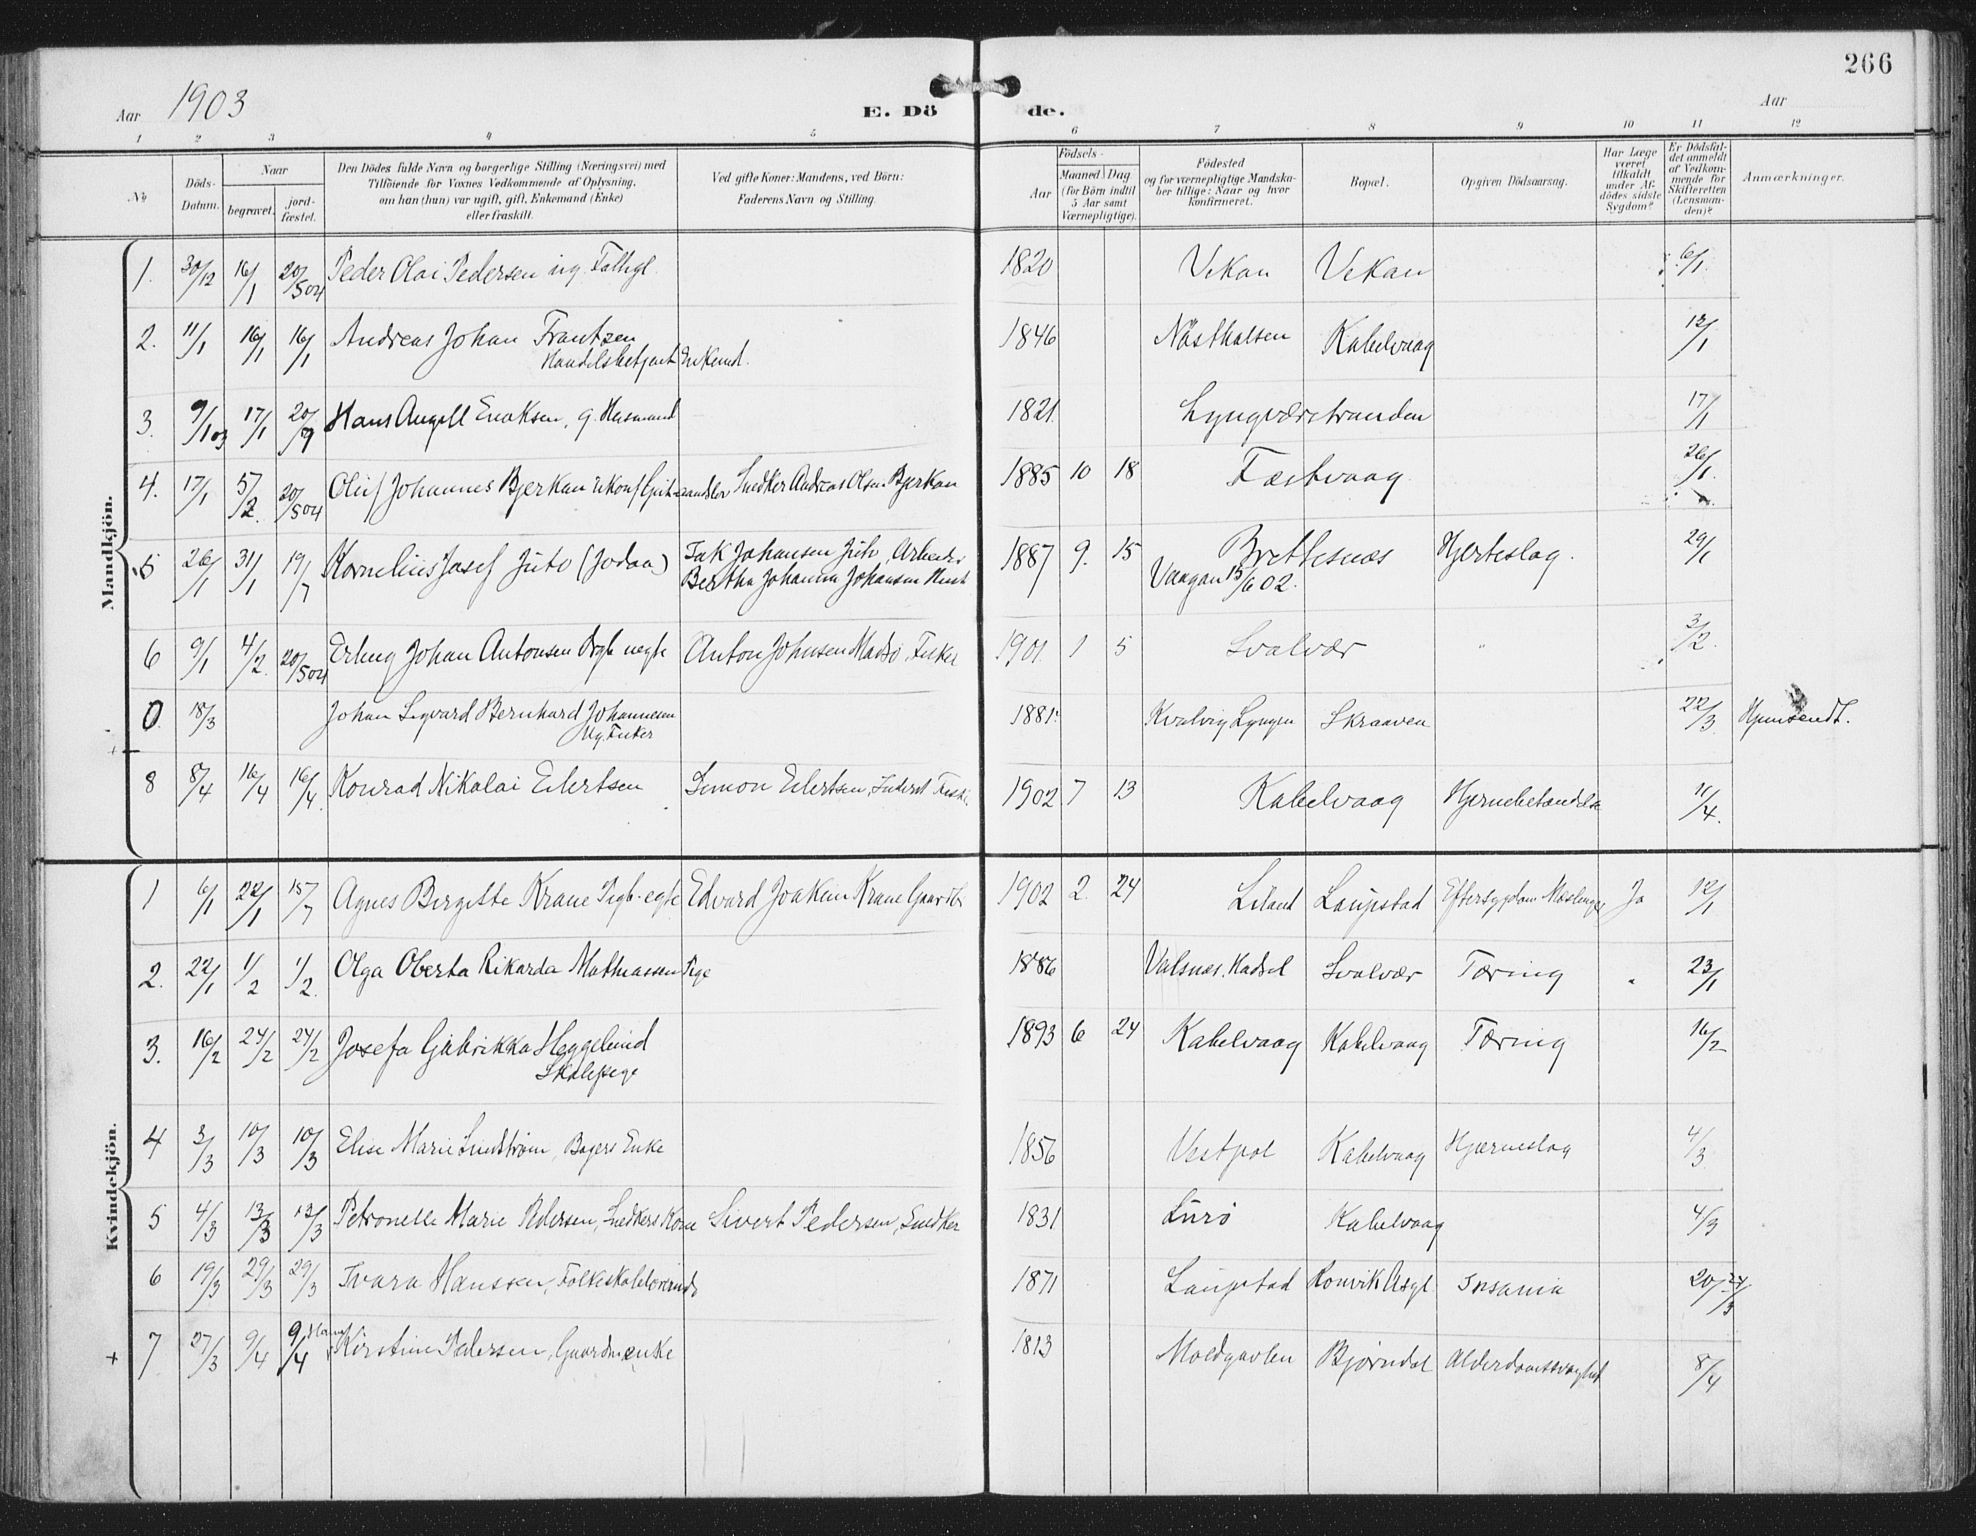 266
Aar 1903
E. Dö de.
Aar
1 2 3 4 5 6 7 8 9 10 11 12
No
Döds-Datum.
Naar
begravet.
jord-fæstet.
Den Dödes fulde Navn og borgerlige Stilling (Næringsvei) med
Tilföiende for Voxnes Vedkommende af Oplysning,
om han (hun) var ugift, gift, Enkemand (Enke)
eller fraskilt.
Ved gifte Koner: Mandens, ved Börn:
Faderens Navn og Stilling.
Födsels-
Aar
Maaned Dag
(for Börn indtil
5 Aar samt
Værnepligtige).
Födested
og for værnepligtige Mandska-
ber tillige: Naar og hvor
konfirmeret.
Bopæl.
Opgiven Dödsaarsag.
Har Læge
været
tilkaldt
under Af-
dödes sidste
Sygdom?
Er Dödsfal-
det anmeldt
af Vedkom-
mende for
Skifteretten
(Lensman-
den)?
Anmærkninger.
Mandkjön.
1. 30/12 16/1 20/5 04 Peder Olai Pedersen ug. 1820 Vekan Vekan 6/1
2. 11/1 16/1 16/1 Andreas Johan Frantzen 1846 Kabelvaag 12/1
Handelsbetjent Enkemd.
3. 9/1 03 17/1 20/9 Hans Angell Enoksen, g. Husmand 1821 Lyngværstranden 17/1
4. 17/1 5/2. 20/5 04 Oluf Johannes Bjerkan Snedker Andreas Olsen Bjerkan 1885 10 18 Festvaag 26/1.
5 26/1 31/1 19/7 Kornelius Josef Juto Johansen Juto, 1887 9. 15 Brettesnæs Hjerteslag. 29/1
Bertha Johanna Johansen Vaagan 15/6 02.
6 9/1 4/2. 20/5 04 Erling Johan Antonsen Drgb uegte Anton Johnsen Madsø, Fisker 1901. 1 5 Svolvær " 3/2.
0. 18/3 Johan Sigvard Bernhard Johannesen 1881. Kvalvig Lyngen Skraaven 22/3. Hjemsendt.
Ug. Fisker
8 8/4 16/4 16/4. Konrad Nikolai Eilertsen Simon Eilertsen, 1902 7 13 Kabelvaag Hjernebetændelse 11/4.
Kvindekjön.
1 6/1 22/1 15/7 Agnes Birgitte Krane Pigb. egte Edvard Joakim Krane Gaardb. 1902 2. 24 Liland Laupstad Eftersygdom Ja 12/1
2. 22/1 1/2 1/2. Olga Oberta Rikarda Mathiassen Pige 1886 Valsnæs, Hadsel Svolvær Tæring " 23/1
3. 16/2 24/2 24/2 Josefa Gjabrikka Heggelund 1893 6 24 Kabelvaag Kabelvaag Tæring 16/2
Skolepige
4 3/3 10/3 10/3 Elise Marie Lindstrøm, Bagers Enke 1856 Vestpol Kabelvaag Hjerneslag 4/3.
5 4/3 13/3 13/3 Petronelle Marie Pedersen, Snedkers Kone Sivert Pedersen, Snedker 1831 Lurø Kabelvaag 4/3
6 19/3 29/3 29/3 Ivara Hanssen, 1871 Laupstad Ronvik Asyl. Insania 20/ 24/3
+ 7 27/3 9/4 9/4 Kirstine Pedersen, Gaardm. enke 1813 Moldgavlen Bjørndal Alderdomssvaghed 8/4